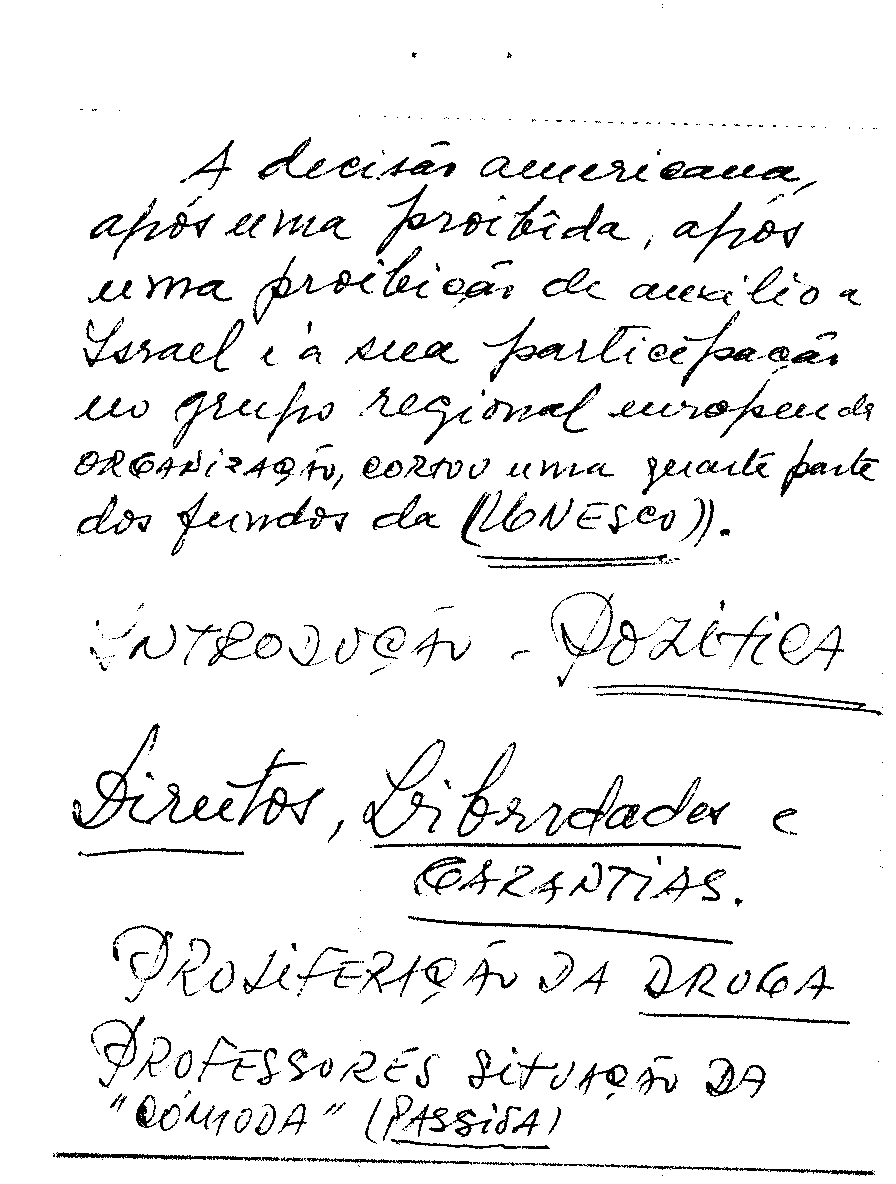 A decisão americana,
após uma proibida, após
uma proibição de auxílio a
Israel e à sua participação
no grupo regional europeu da
ORGANIZAÇÃO, CORTOU uma quarta parte
dos fundos da (UNESCO)).
INTRODUÇÃO - POLÍTICA
Direitos, Liberdades e
GARANTIAS.
PROLIFERAÇÃO DA DROGA
PROFESSORES SITUAÇÃO DA
"CÓMODA" (PASSIVA)